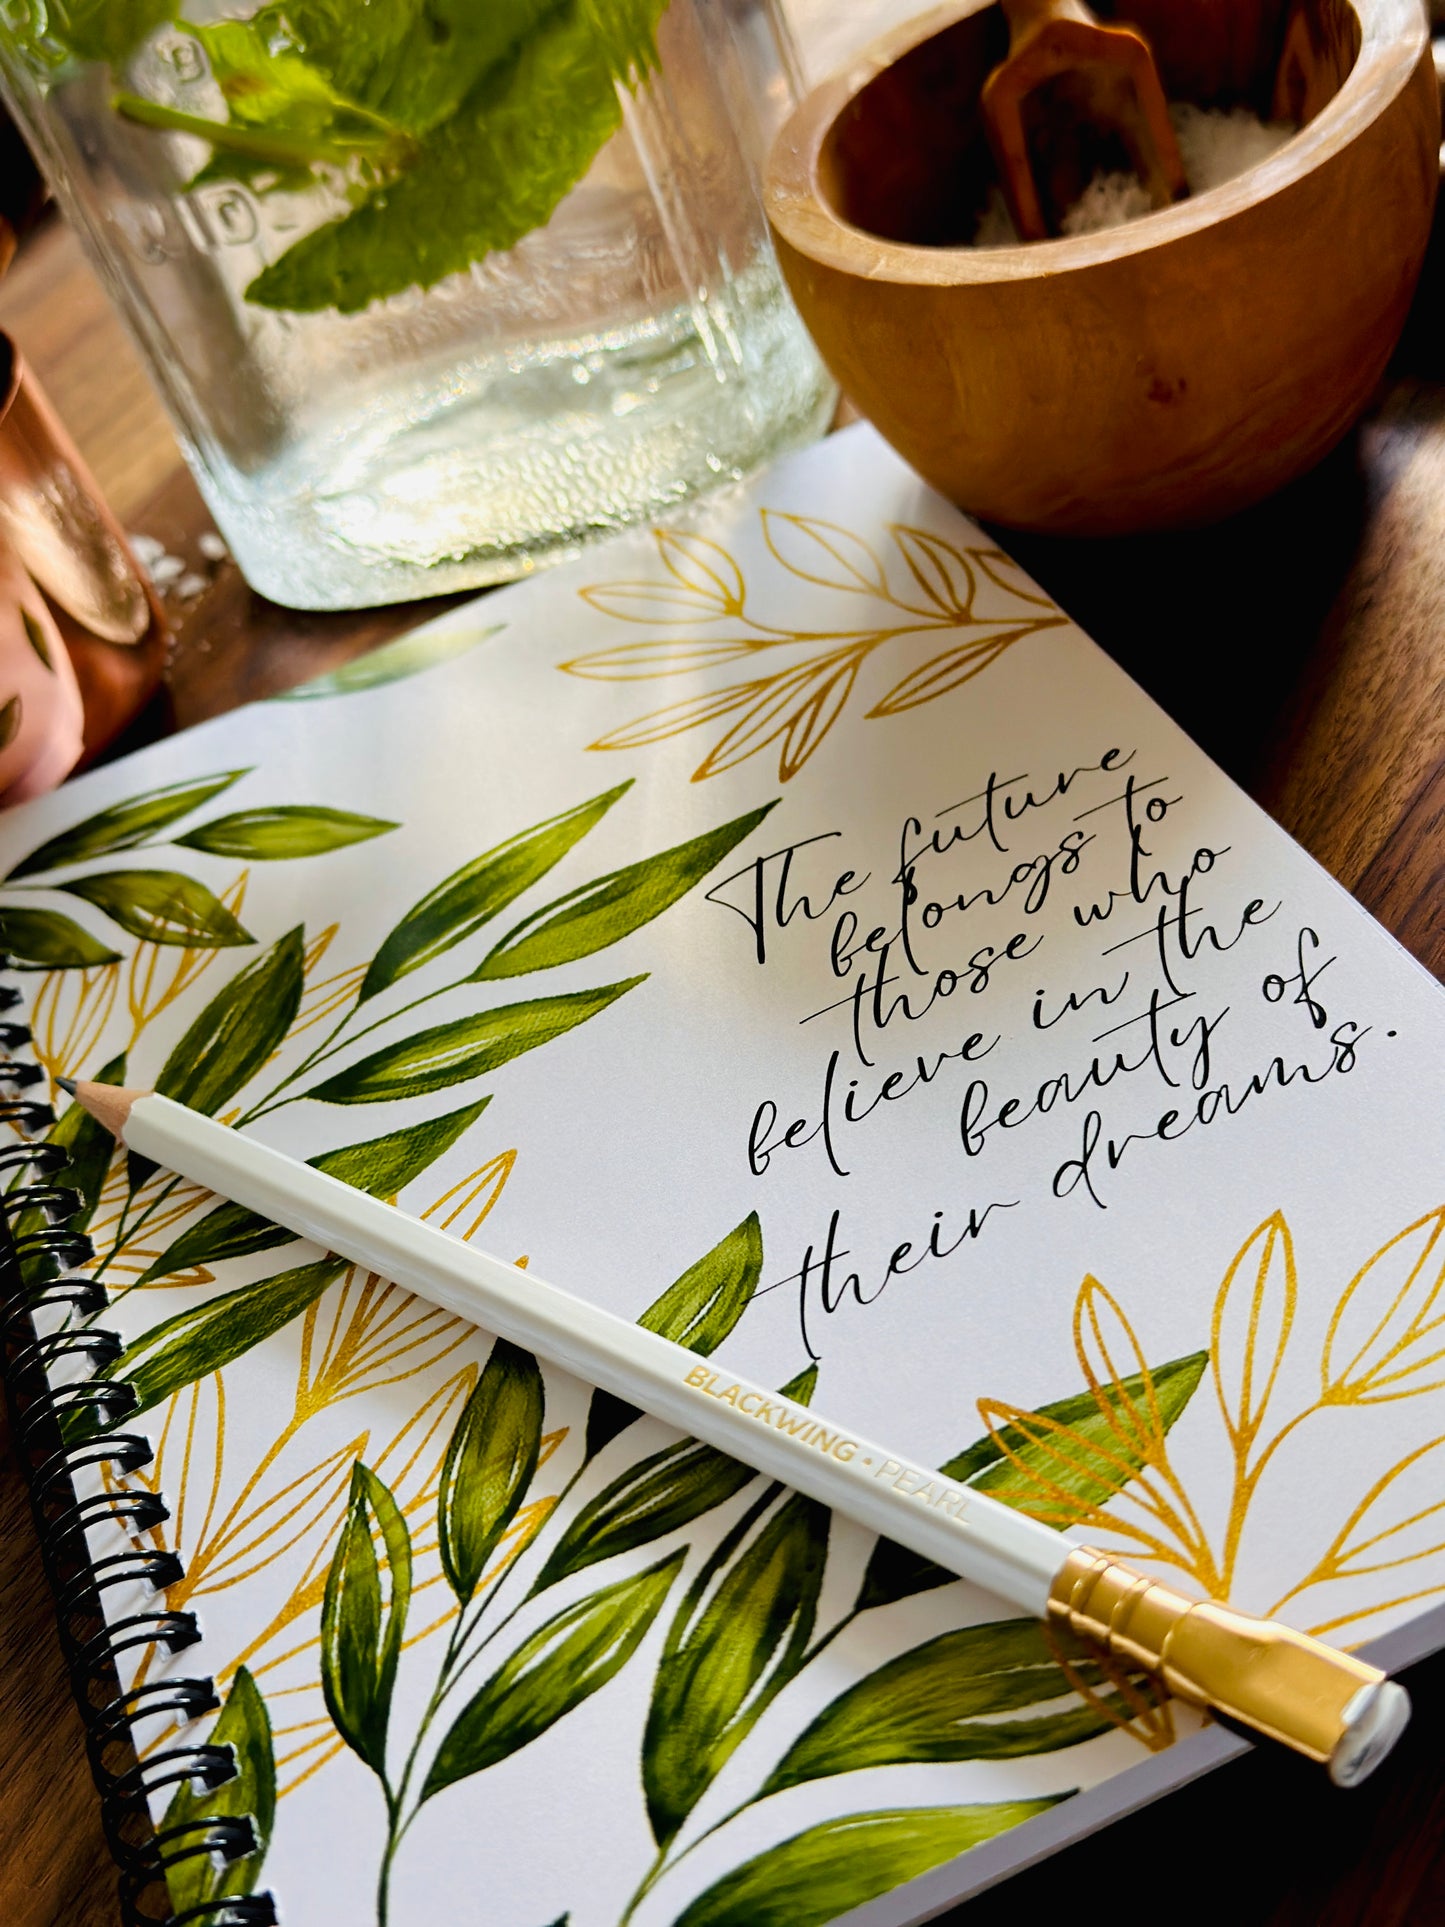 The future
belongs to
those who
believe in the
beauty of
their dreams.
BLACKWING • PEARL